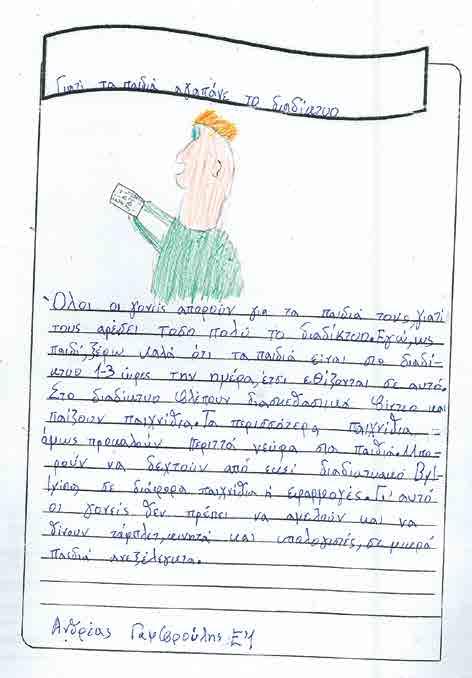 Γιατί τα παιδιά αγαπάνε το διαδίκτυο
Όλοι οι γονείς απορούν για τα παιδιά τους, γιατί
τους αρέσει τόσο πολύ το διαδίκτυο. Εγώ, ως
παιδί, ξέρω καλά ότι τα παιδιά είναι στο διαδί-
κτυο 1-3 ώρες την ημέρα, έτσι εθίζονται σε αυτό.
Στο διαδίκτυο βλέπουν διασκεδαστικά βίντεο και
παίζουν παιχνίδια. Τα περισσότερα παιχνίδια
όμως προκαλούν περιττά νεύρα στα παιδιά. Μπο-
ρούν να δεχτούν από εκεί διαδικτυακό
σε διάφορα παιχνίδια ή εφαρμογές. Γι' αυτό
οι γονείς δεν πρέπει να αμελούν και να
δίνουν τάμπλετ, κινητά και υπολογιστές, σε μικρά
παιδιά ανεξέλεγκτα.
Ανδρέας